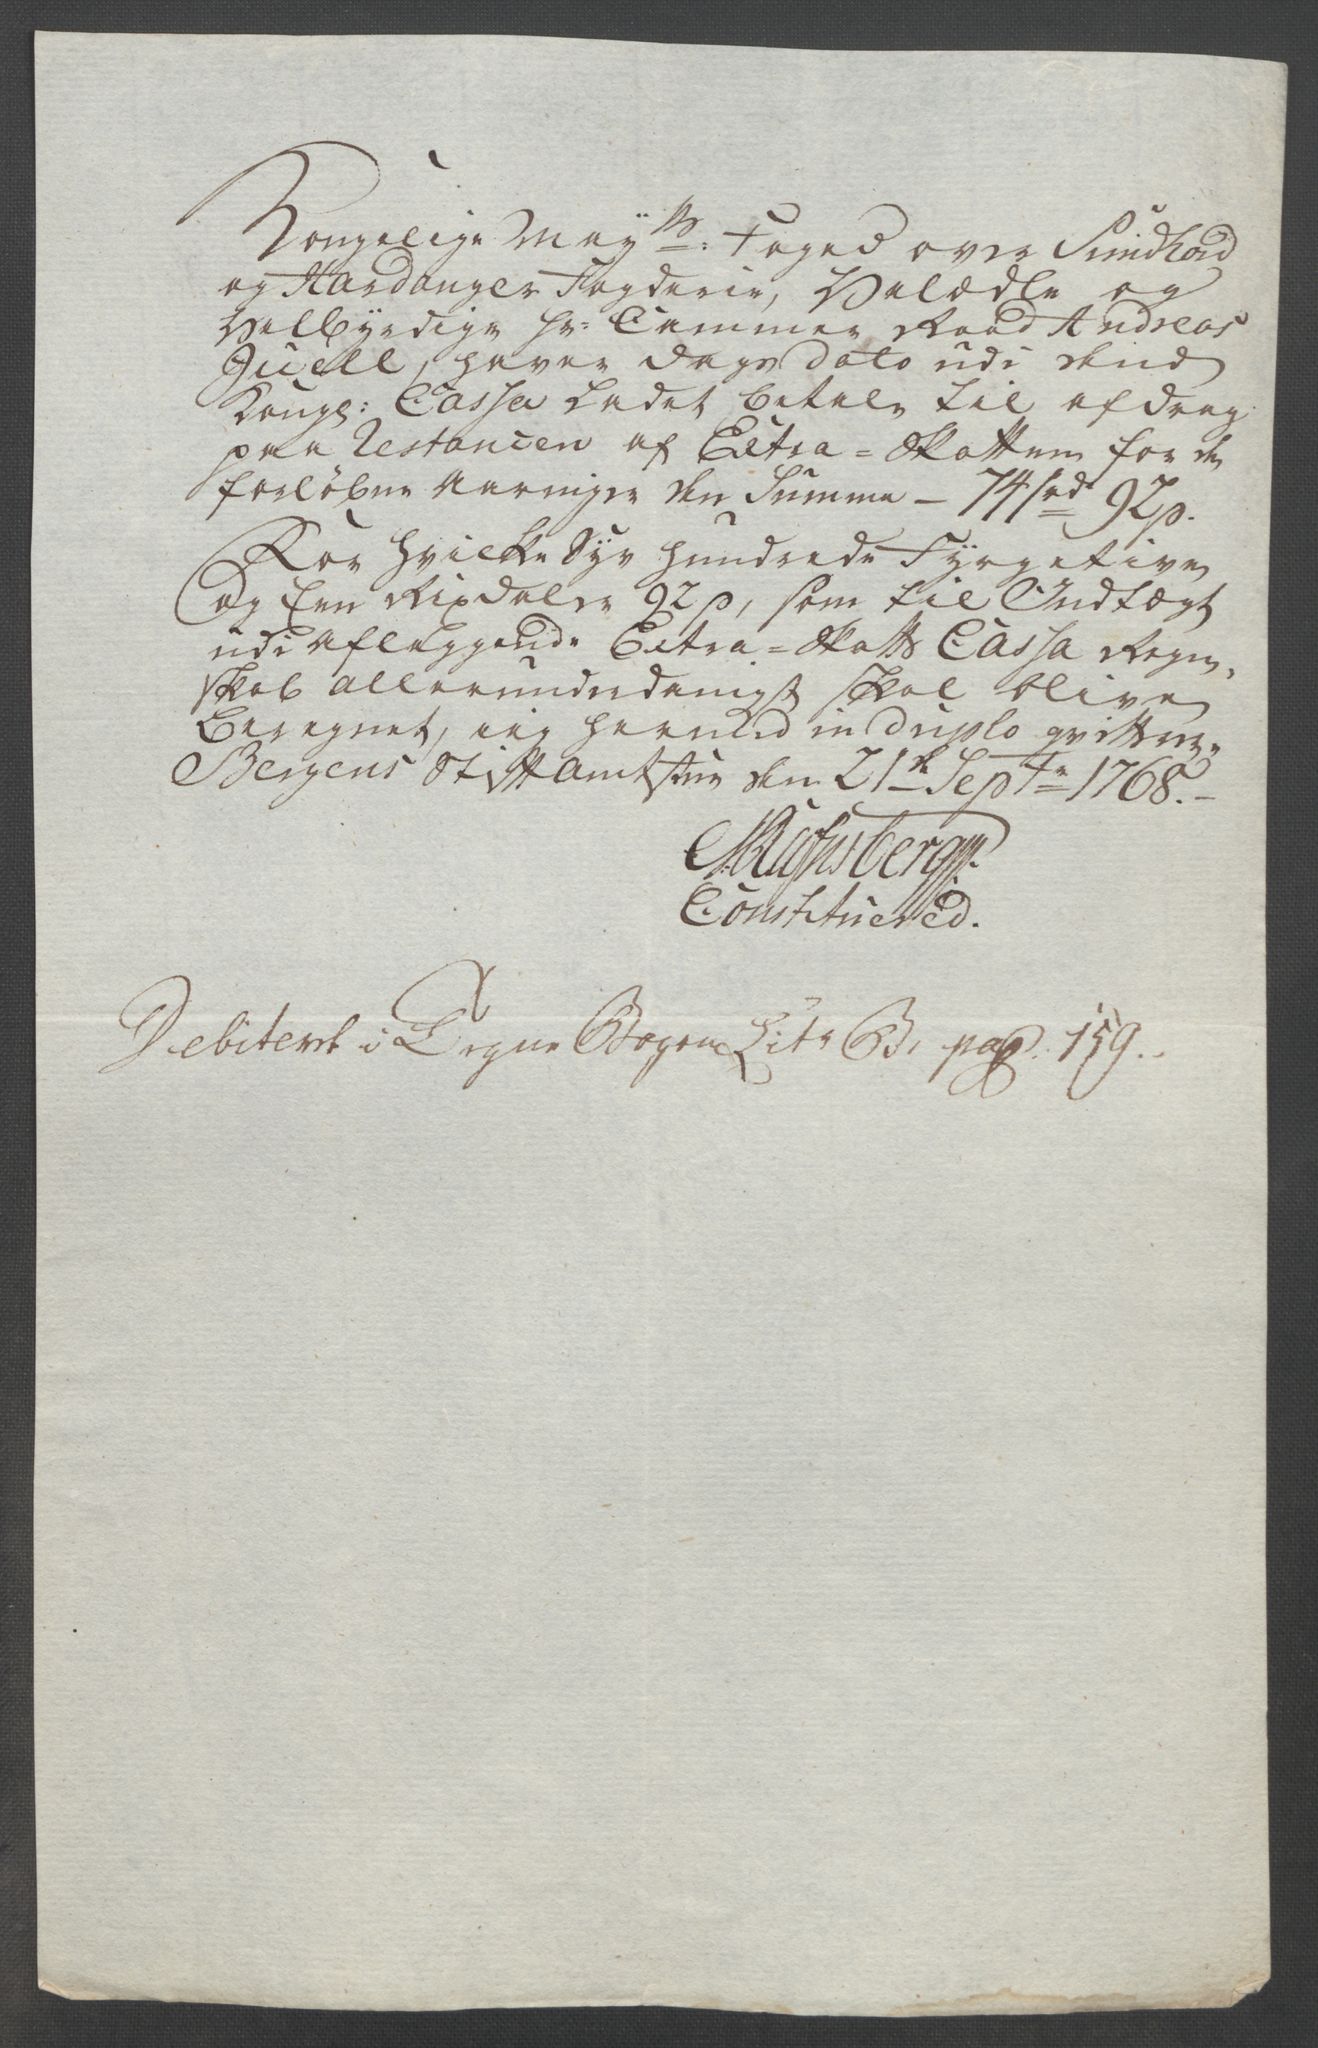 Kongelige Mayts: Foged over Sundhord
og Hardanger Fogderie, Velædle og
Velbyrdige Hr: Cammer Raad Andreas
Juell, haver Dags Dato udi dend
Kongl: Cassa Ladet betale til afdrag
paa Restancen af Extra=Skatten for de
forløbne Aaringer den Summa — 741rd 92s.
For hvilke Syv hundrede Fyrgetive
og Een Rixdaler 92s, som til Indtægt
udi aflæggende Extra=Skatts Cassa Regn-
skab allerunderdanigst skal blive
beregnet, ieg herved in duplo qvitterer
Bergens Stiftamtstue den 21de Septr 1768.
Constituered.
Debiteret i Eegne Bogen Litr B, pag. 159.